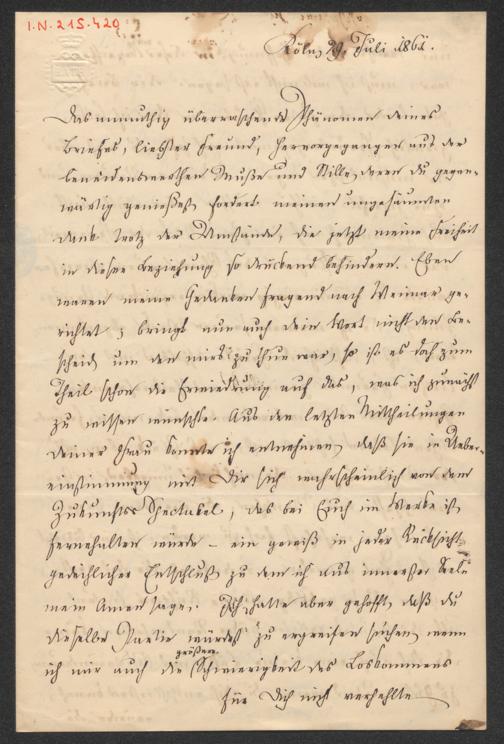 I.N. 215.429
Köln, 29. Juli 1861.
Das anmuthig überraschende Phänomen deines
Briefes, liebster Freund, hervorgegangen aus der
beneidenswerthen Muße und Stille, deren du gegen-
wärtig genießest, fordert meinen ungesäumten
Dank trotz der Umstände, die jetzt meine Freiheit
in dieser Beziehung so drückend behindern. Eben
waren meine Gedanken fragend nach Weimar ge-
richtet; bringt nun auch dein Wort nicht den Be-
scheid, um den mir's zu thun war, so ist es doch zum
Theil schon die Erwiederung auf das, was ich zunächst
zu wissen wünschte. Aus den letzten Mittheilungen
deiner Frau konnte ich entnehmen, daß sie in Ueber-
einstimmung mit Dir sich wahrscheinlich von dem
Zukunfts-Spectakel, das bei Euch im Werke ist,
fernehalten würde – ein gewiß in jeder Rücksicht
gedeihlicher Entschluß, zu dem ich aus innerster Seele
mein Amen sage. Ich hatte aber gehofft, daß du
dieselbe Partie würdest zu ergreifen suchen, wenn
ich mir auch die größere Schwierigkeit des Loskommens
für Dich nicht verhehlte